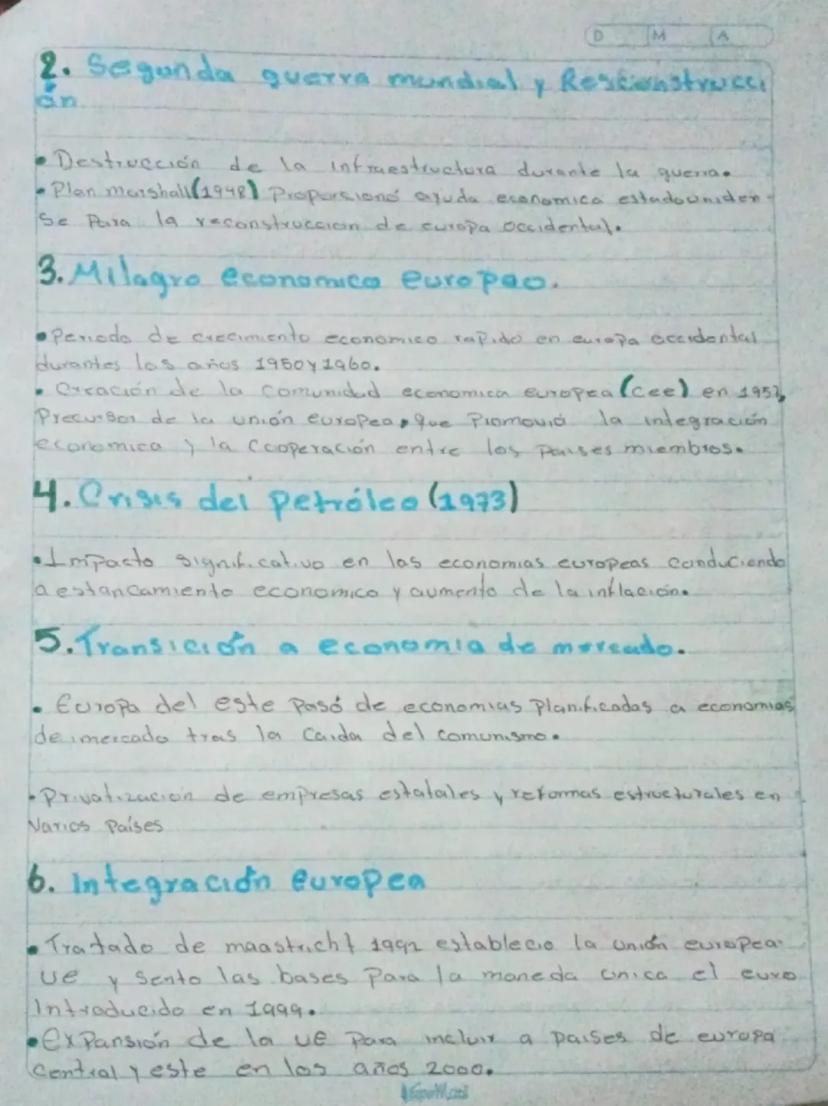 D M A
2. Segunda guerra mundial y Resconstrucci
ón
• Destrucción de la infraestructura durante la guerra.
• Plan marshall (1948) Proporsionó ayuda economica estadouniden-
se Para la reconstruccion de europa occidental.
3. Milagro economico europeo.
• Periodo de crecimiento economico rapido en europa occidental
durantes los años 1950 y 1960.
• Creación de la comunidad economica europea (cee) en 1957,
Precursor de la unión europea, que Promovió la integración
economica y la cooperación entre los paises miembros.
4. Crisis del petróleo (1973)
• Impacto significativo en las economias europeas conduciendo
a estancamiento economico y aumento de la inflación.
5. Transición a economia de mercado.
• Europa del este Pasó de economias planificadas a economias
de mercado tras la caida del comunismo.
• Privatizacion de empresas estatales y reformas estructurales en
varios países
6. Integración europea
• Tratado de maastricht 1992 establecio la unión europea
ue y sento las bases Para la moneda unica el euro
Introducido en 1999.
• Expansión de la ue para incluir a paises de europa
central y este en los años 2000.